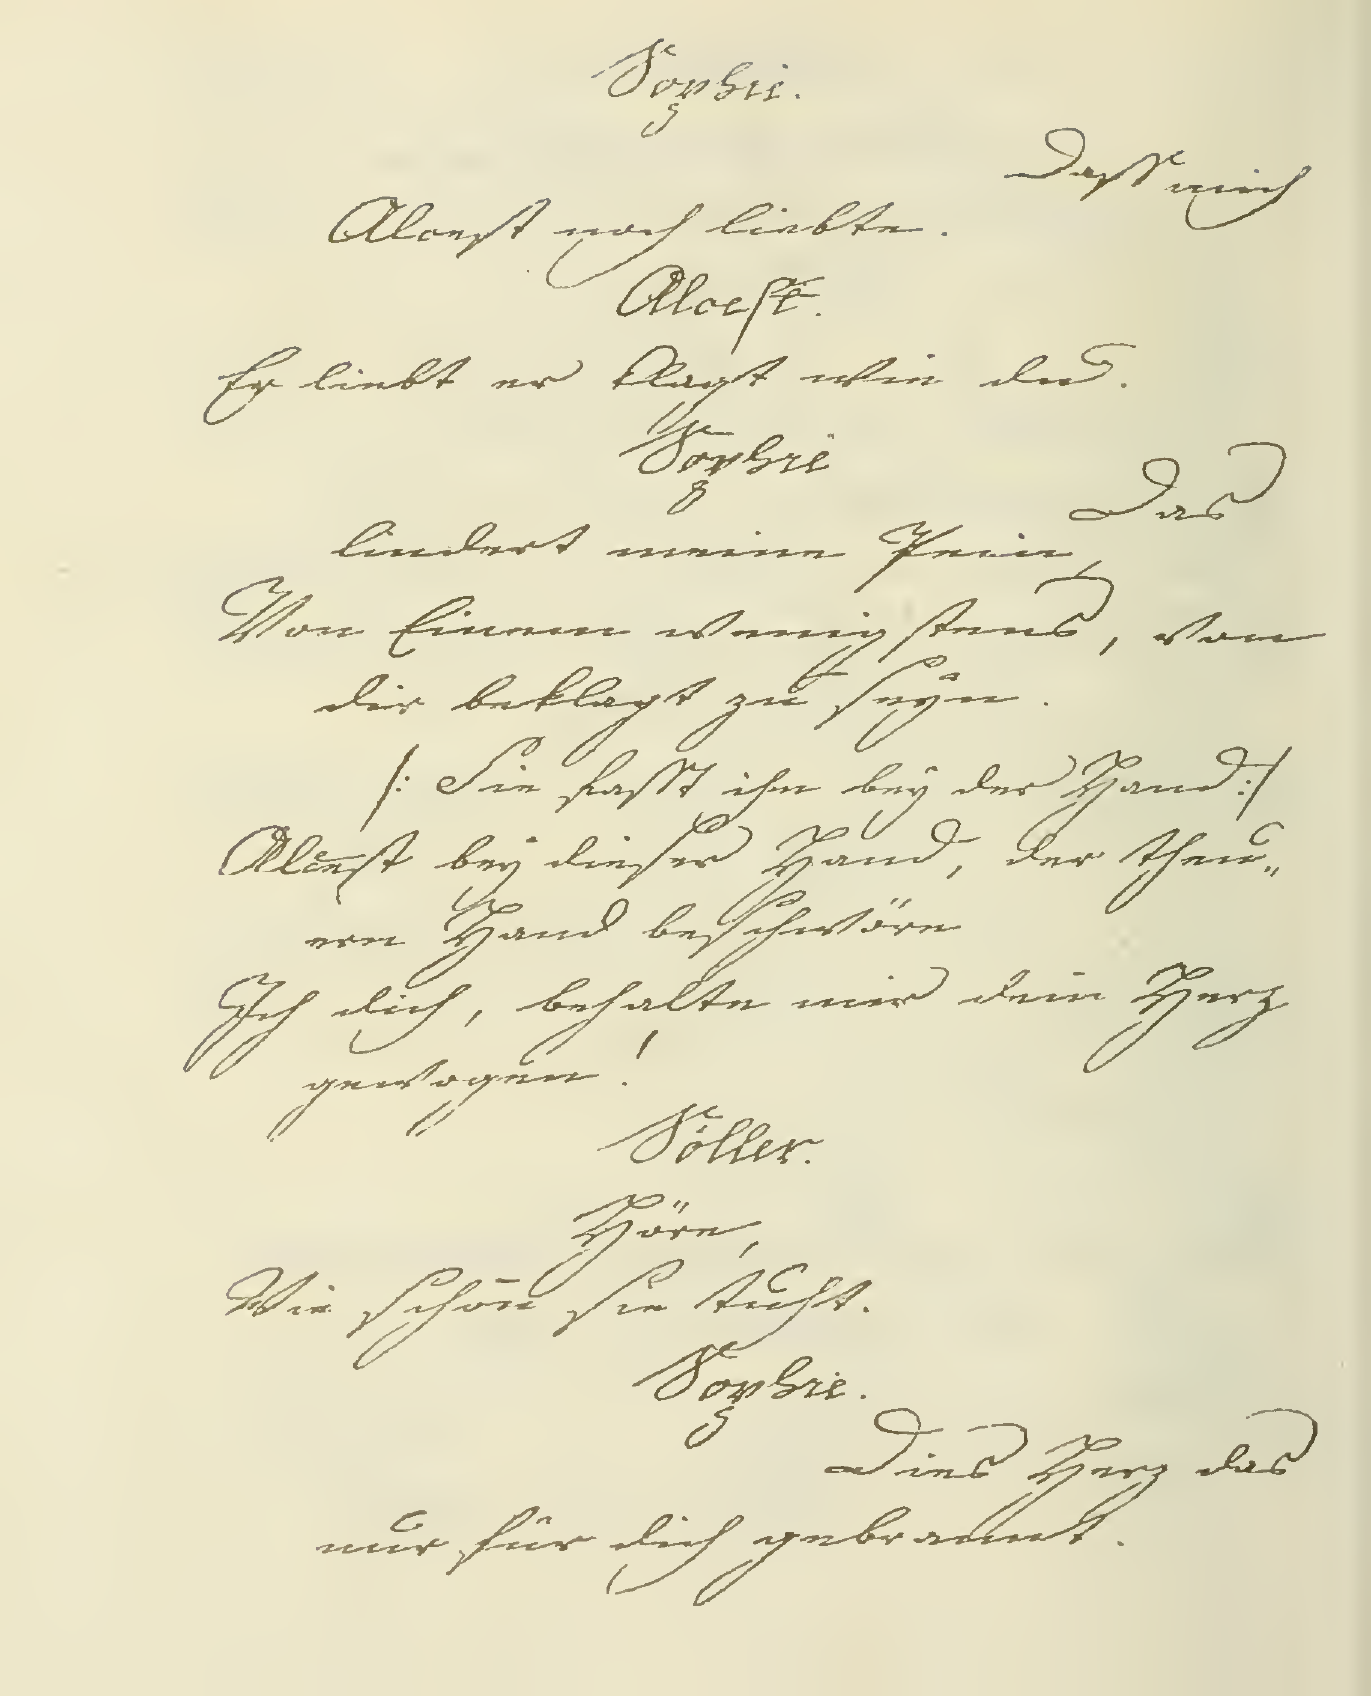 Sophie.
Dasst mich
Alcest noch liebte.
Alcest.
Er liebt er klagt wie du.
Sophie
Das
lindert meine Pein,
Von Einem wenigstens, von
dir beklagt zu seyn.
/: Sie fasst ihn bey der Hand :/
Alcest bey dieser Hand, der theu„
ern Hand beschwöre
Ich dich, behalte mir dein Herz
gewogen!
Söller.
Höre,
Wie schön sie tuht.
Sophie.
Dies Herz das
nur für dich gebrannt.